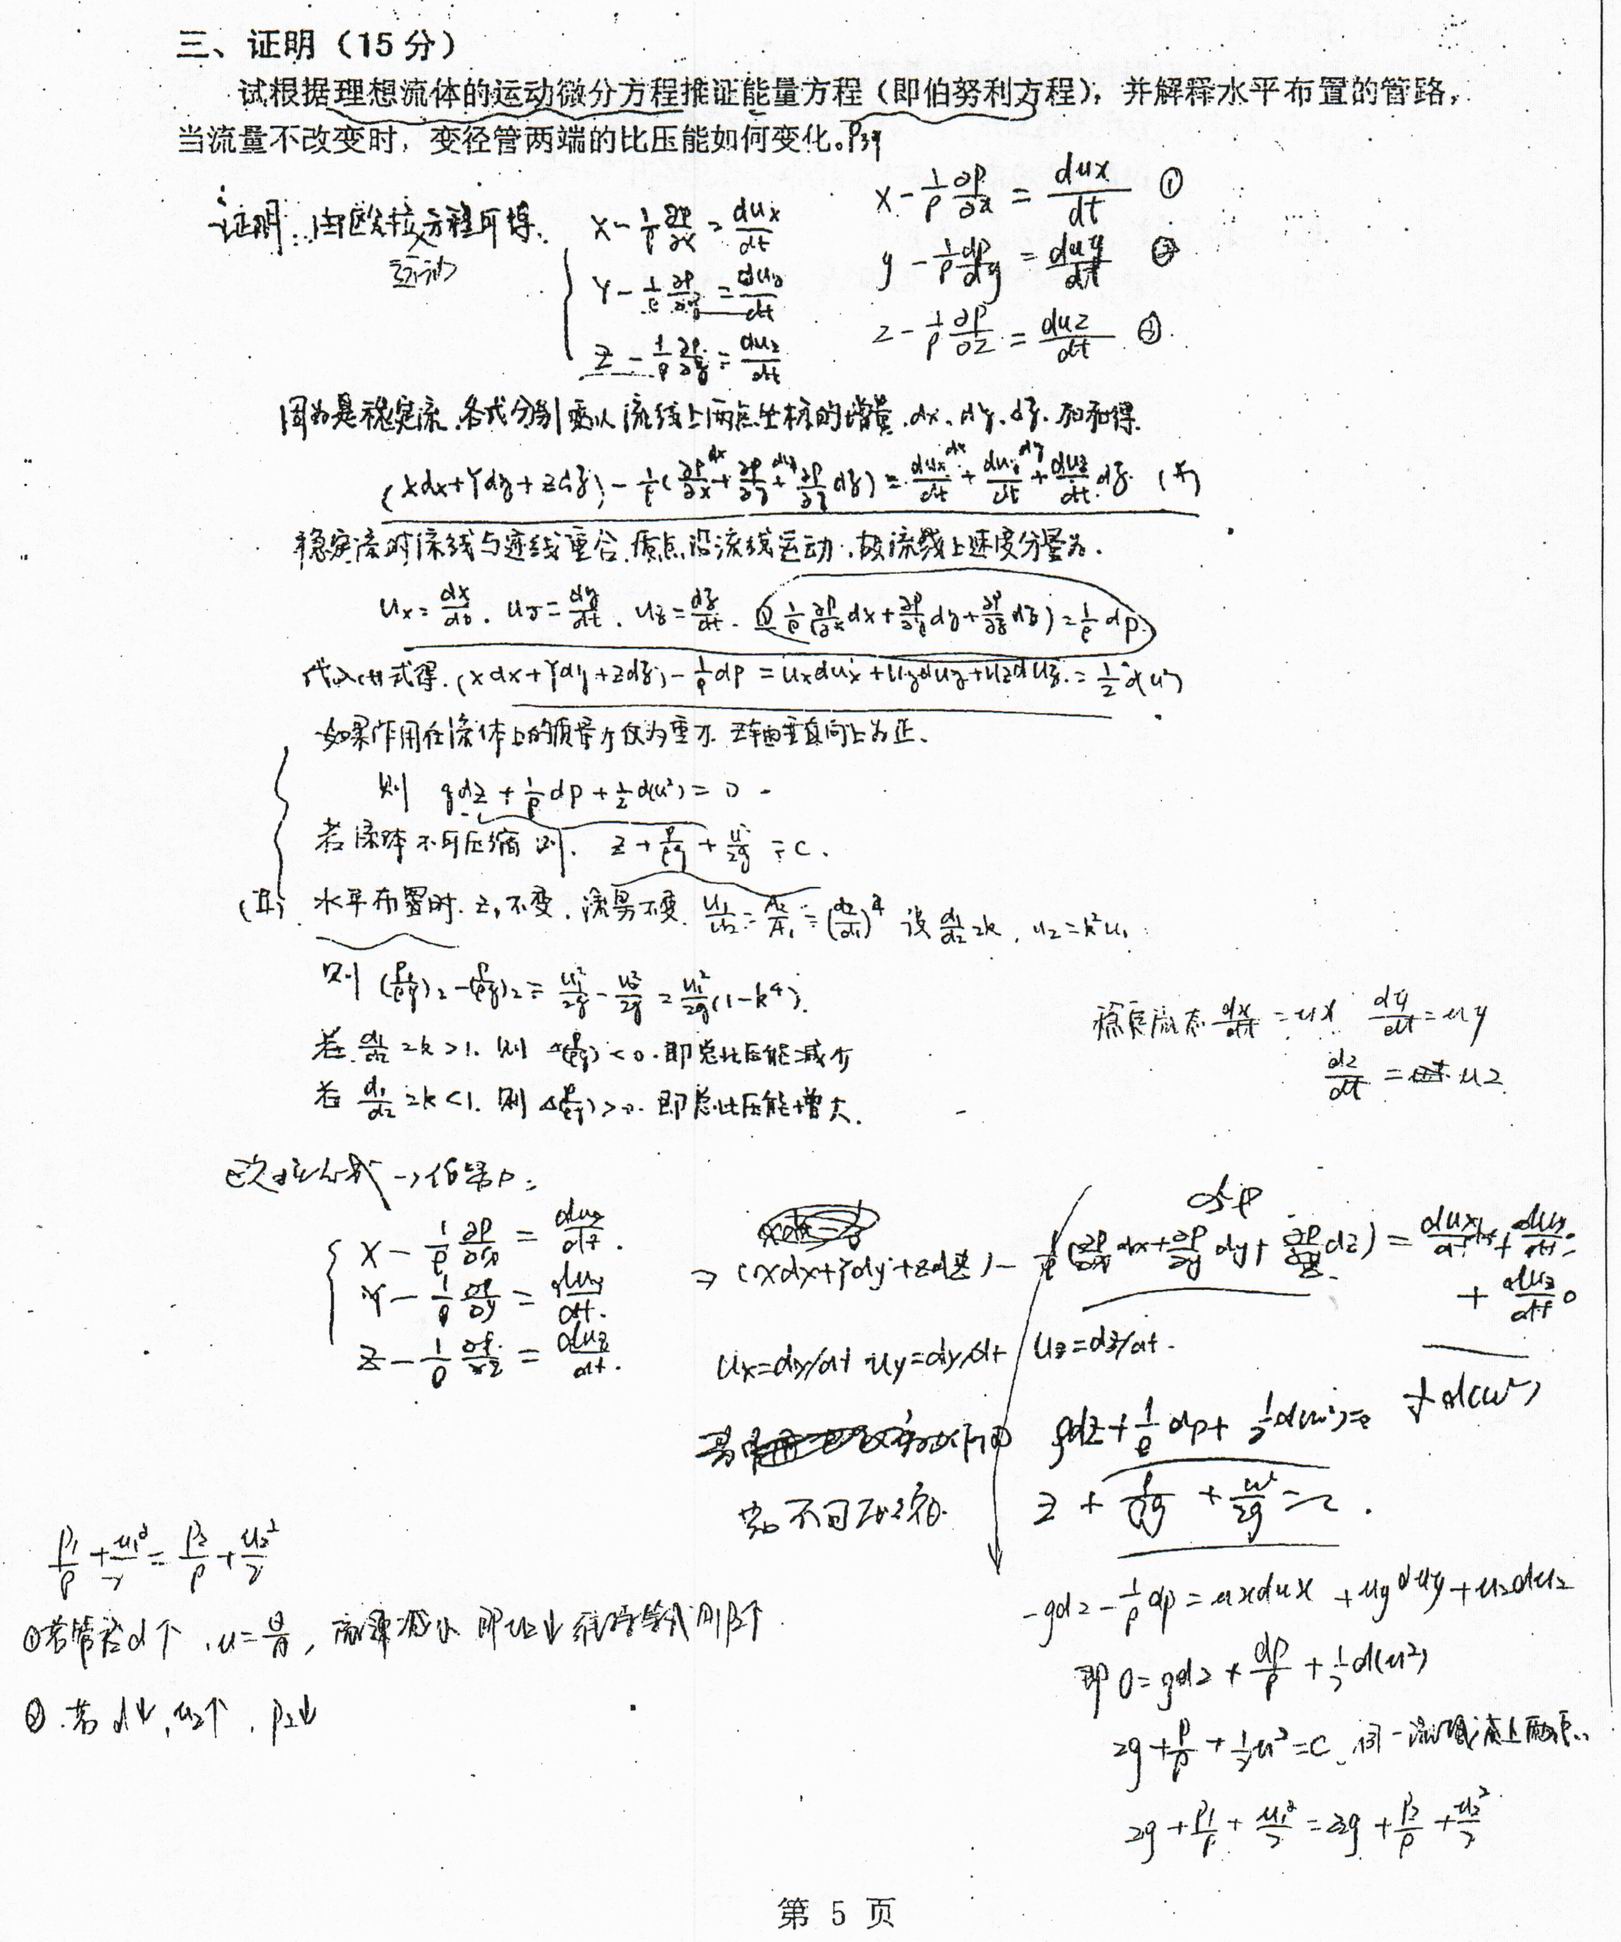 三、证明（15分）
试根据理想流体的运动微分方程推证能量方程（即伯努利方程），并解释水平布置的管路，
当流量不改变时，变径管两端的比压能如何变化。P39
证明：由欧拉方程可得.
运动
X - 1/ρ ∂p/∂x = dux/dt
Y - 1/ρ ∂p/∂y = duy/dt
Z - 1/ρ ∂p/∂z = duz/dt
x - 1/ρ ∂p/∂x = dux/dt ①
y - 1/ρ dp/dy = duy/dt ②
z - 1/ρ ∂p/∂z = duz/dt ③
因为是稳定流.各式分别乘以流线上两点坐标的增量.dx、dy、dz.相加得.
(Xdx+Ydy+Zdz) - 1/ρ(∂p/∂x dx + ∂p/∂y dy + ∂p/∂z dz) = dux/dt dx + duy/dt dy + duz/dt dz. (*)
稳定流时流线与迹线重合.质点沿流线运动.故流线上速度分量为.
ux = dx/dt. uy = dy/dt. uz = dz/dt. 且 1/ρ(∂p/∂x dx + ∂p/∂y dy + ∂p/∂z dz) = 1/ρ dp.
代入(*)式得.(Xdx+Ydy+Zdz) - 1/ρ dp = uxdux+uyduy+uzduz. = 1/2 d(u²)
如果作用在流体上的质量力仅为重力.z轴垂直向上为正.
则 gdz + 1/ρ dp + 1/2 d(u²) = 0
若流体不可压缩则. z + p/ρg + u²/2g = C.
水平布置时.z,不变.流量不变. u1/u2 = A2/A1 = (d2/d1)² 设 d1/d2 = k, u2 = k²u1
则 (p/ρg)2 - (p/ρg)2 = u1²/2g - u2²/2g = u1²/2g (1-k⁴).
若 d1/d2 = k > 1. 则 Δ(p/ρg) < 0. 即总比压能减少
若 d1/d2 = k < 1. 则 Δ(p/ρg) > 0. 即总比压能增大.
稳定流态 dx/dt = ux dy/dt = uy
dz/dt = uz
X - 1/ρ ∂p/∂x = dux/dt.
Y - 1/ρ ∂p/∂y = duy/dt.
Z - 1/ρ ∂p/∂z = duz/dt.
⇒ (Xdx+Ydy+Zdz) - 1/ρ(∂p/∂x dx + ∂p/∂y dy + ∂p/∂z dz) = dux/dt + duy/dt
+ duz/dt
ux=dx/dt uy=dy/dt uz=dz/dt.
gdz + 1/ρ dp + 1/2 d(u²) =
1/2 d(u²)
若不可压缩. z + p/ρg + u²/2g = c.
-gdz - 1/ρ dp = uxdux + uyduy + uzduz
即 0 = gdz + dp/ρ + 1/2 d(u²)
zg + p/ρ + 1/2 u² = C
zg + p1/ρ + u1²/2 = zg + p2/ρ + u2²/2
p1/ρ + u1²/2 = p2/ρ + u2²/2
①若管径d↑, u=Q/A, 流速减小 即u2↓ 则p2↑
②.若d↓, u2↑, p2↓
第 5 页